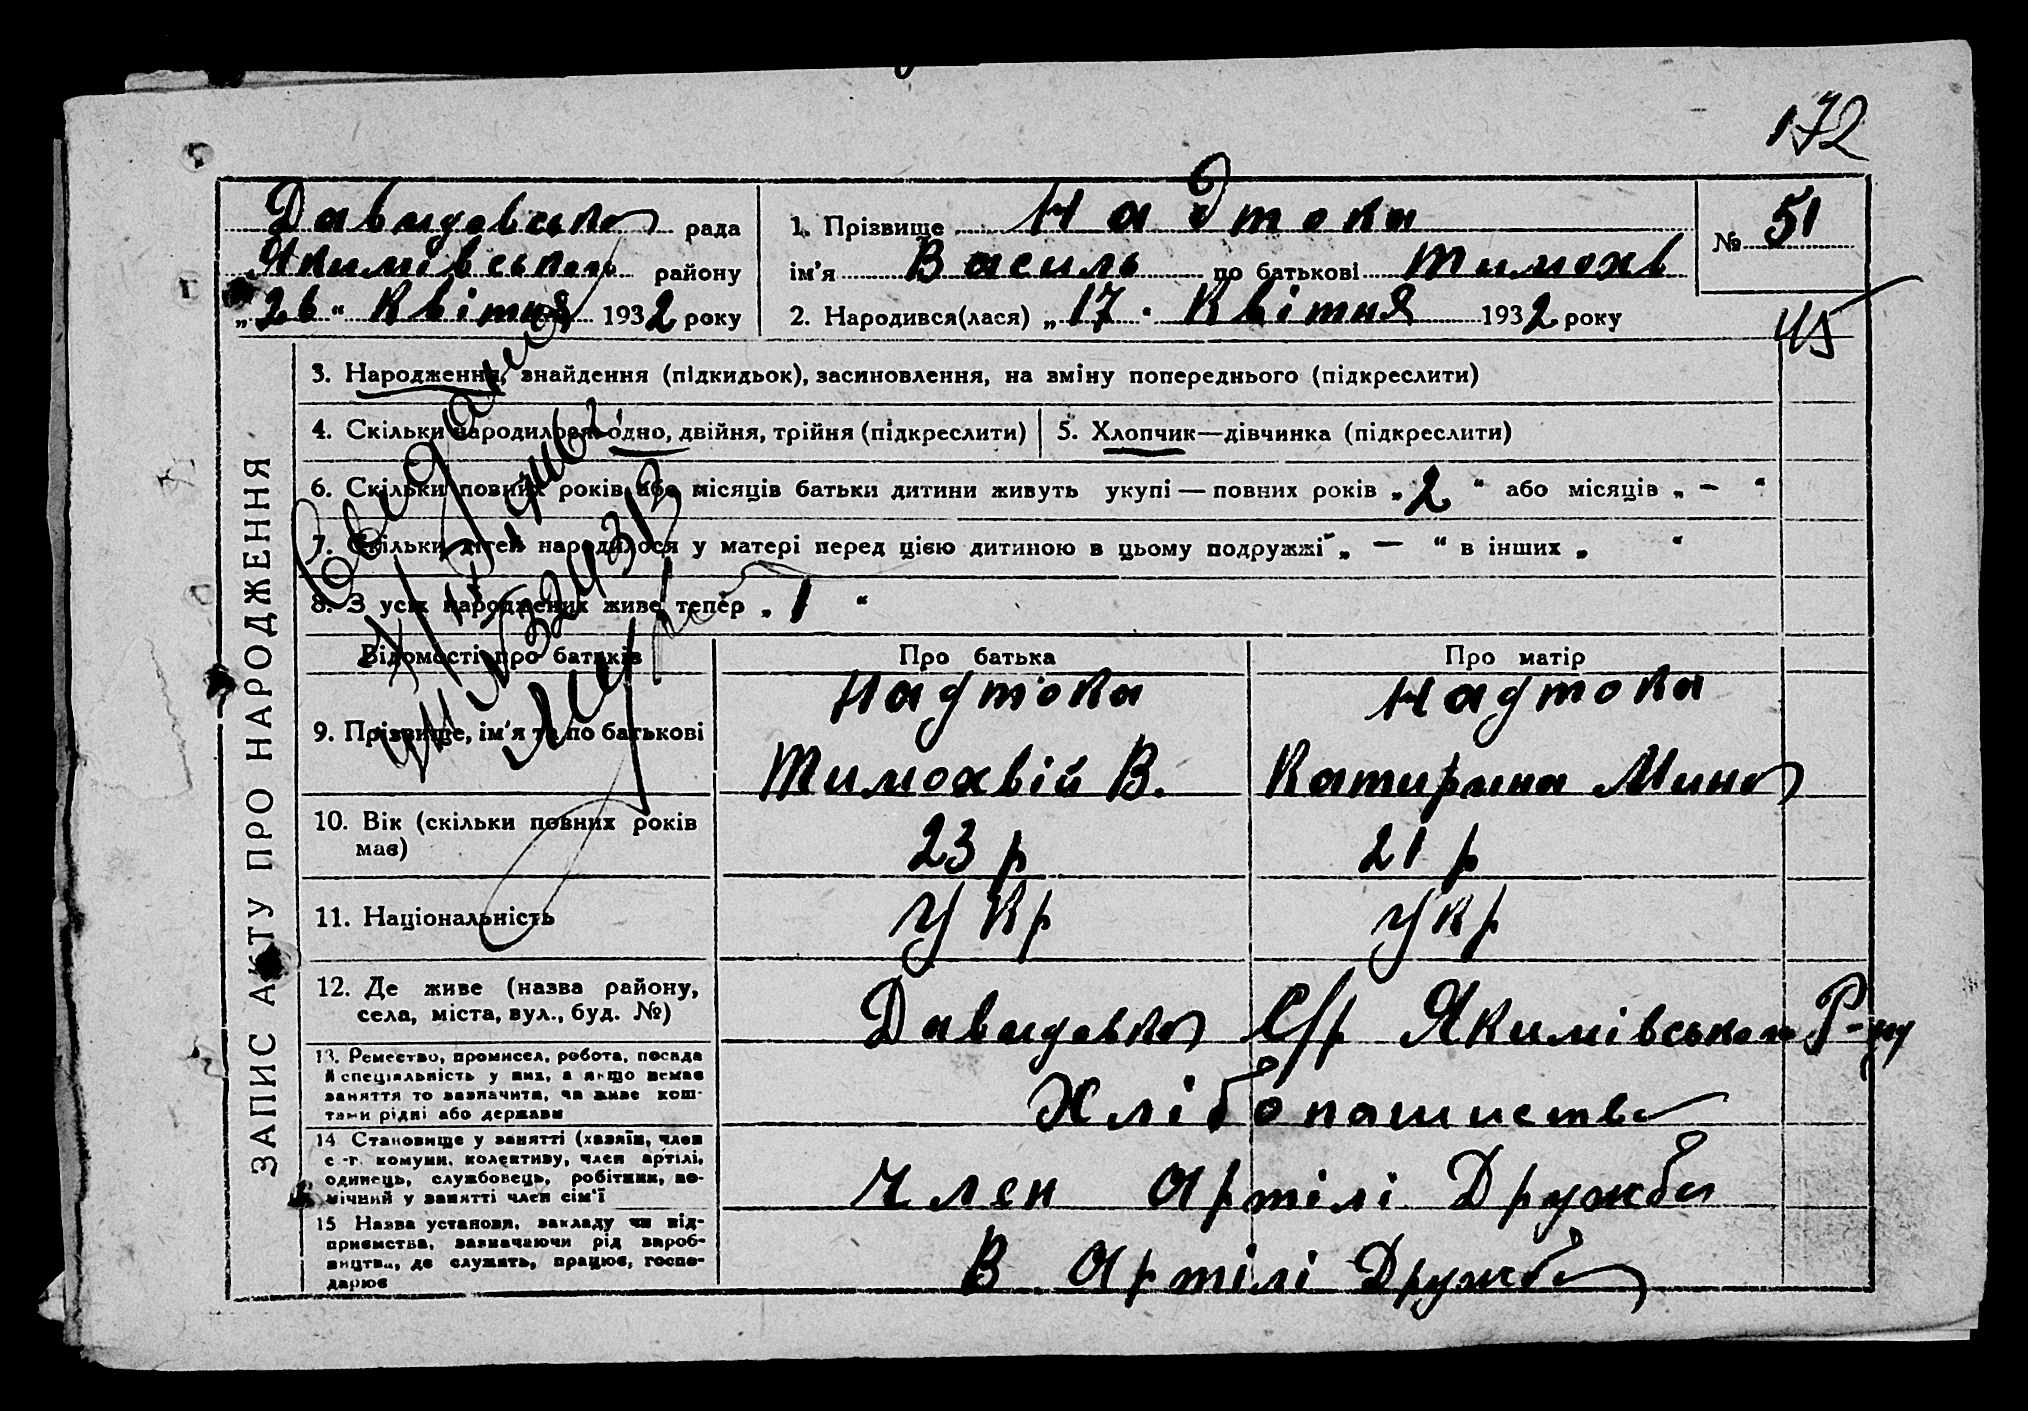 172
Давидовська рада
Якимівського району
„26“ Квітня 1932 року
1. Прізвище Надтока
ім'я Василь по батькові Тимохв
2. Народився(лася) „17“ Квітня 1932 року
№ 51
45
ЗАПИС АКТУ ПРО НАРОДЖЕННЯ
3. Народження, знайдення (підкидьок), засиновлення, на зміну попереднього (підкреслити)
4. Скільки народилося: одно, двійня, трійня (підкреслити)
5. Хлопчик—дівчинка (підкреслити)
6. Скільки повних років або місяців батьки дитини живуть укупі — повних років „2“ або місяців „—“
7. Скільки дітей народилося у матері перед цією дитиною в цьому подружжі „—“ в інших „ “
8. З усіх народжених живе тепер „1“
Відомості про батьків
Про батька
Про матір
9. Прізвище, ім'я та по батькові
Надтока
Тимохвій В.
Надтока
Катирина Мина
10. Вік (скільки повних років має)
23 р
21 р
11. Національність
Укр
Укр
12. Де живе (назва району,
села, міста, вул., буд. №)
Давидовка С/р Якимівського Р-ну
13. Ремество, промисел, робота, посада
й спеціяльність у них, а якщо немає
заняття то зазначити, чи живе кош-
тами рідні або держави
Хлібопашиство
14 Становище у занятті (хазяїн, член
с.-г. комуни, колективу, член артілі,
одинець, службовець, робітник, по-
мічний у занятті член сім'ї
Член Артілі Дружба
15 Назва установи, закладу чи під-
приємства, зазначаючи рід вироб-
ництва, де служить, працює, госпо-
дарює
В Артілі Дружба